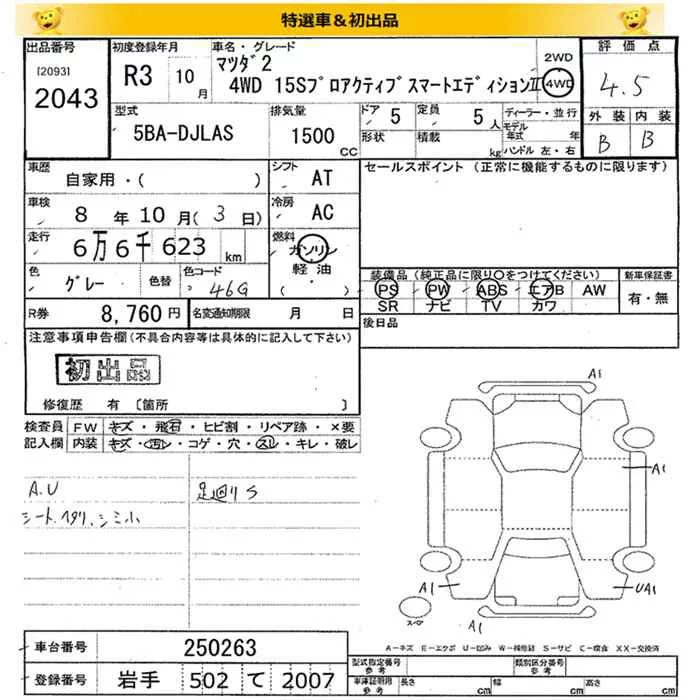 特選車&初出品
出品番号
[2093]
2043
初度登録年月
R3 10月
車名・グレード
マツダ2
4WD 15SプロアクティブスマートエディションⅡ
2WD
4WD
評価点
4.5
外装 内装
B B
型式
5BA-DJLAS
排気量
1500
CC
ドア 5
定員 5人
形状
積載
kg
ディーラー・並行
モデル
年式 年
ハンドル 左・右
車歴
自家用・( )
シフト
AT
セールスポイント (正常に機能するものに限ります)
車検
8年10月(3日)
冷房
AC
走行
6万6千623km
燃料
ガソリン
軽油
( ・ )
色
グレー
色替
色コード
46G
装備品(純正品に限り○をつけてください)
PS PW ABS エアB AW
SR ナビ TV カワ
新車保証書
有・無
R券
8,760円
名変通知期限
月 日
後日品
注意事項申告欄(不具合内容等は具体的に記入して下さい)
初出品
修復歴 有 〔箇所 〕
検査員
記入欄
FW キズ・飛石・ヒビ割・リペア跡・×要
内装 キズ・汚レ・コゲ・穴・スレ・キレ・破レ
A.U
シートヘタリ、シミ小
足廻りS
A1
A1
A1
UA1
A1
スペア
A-キズ E-エクボ U-凹み W-補修跡 S-サビ C-腐食 XX-交換済
車台番号
250263
登録番号
岩手 502 て 2007
型式指定番号
参考
類別区分番号
参考
車庫証明用
参考
長さ cm
幅 cm
高さ cm